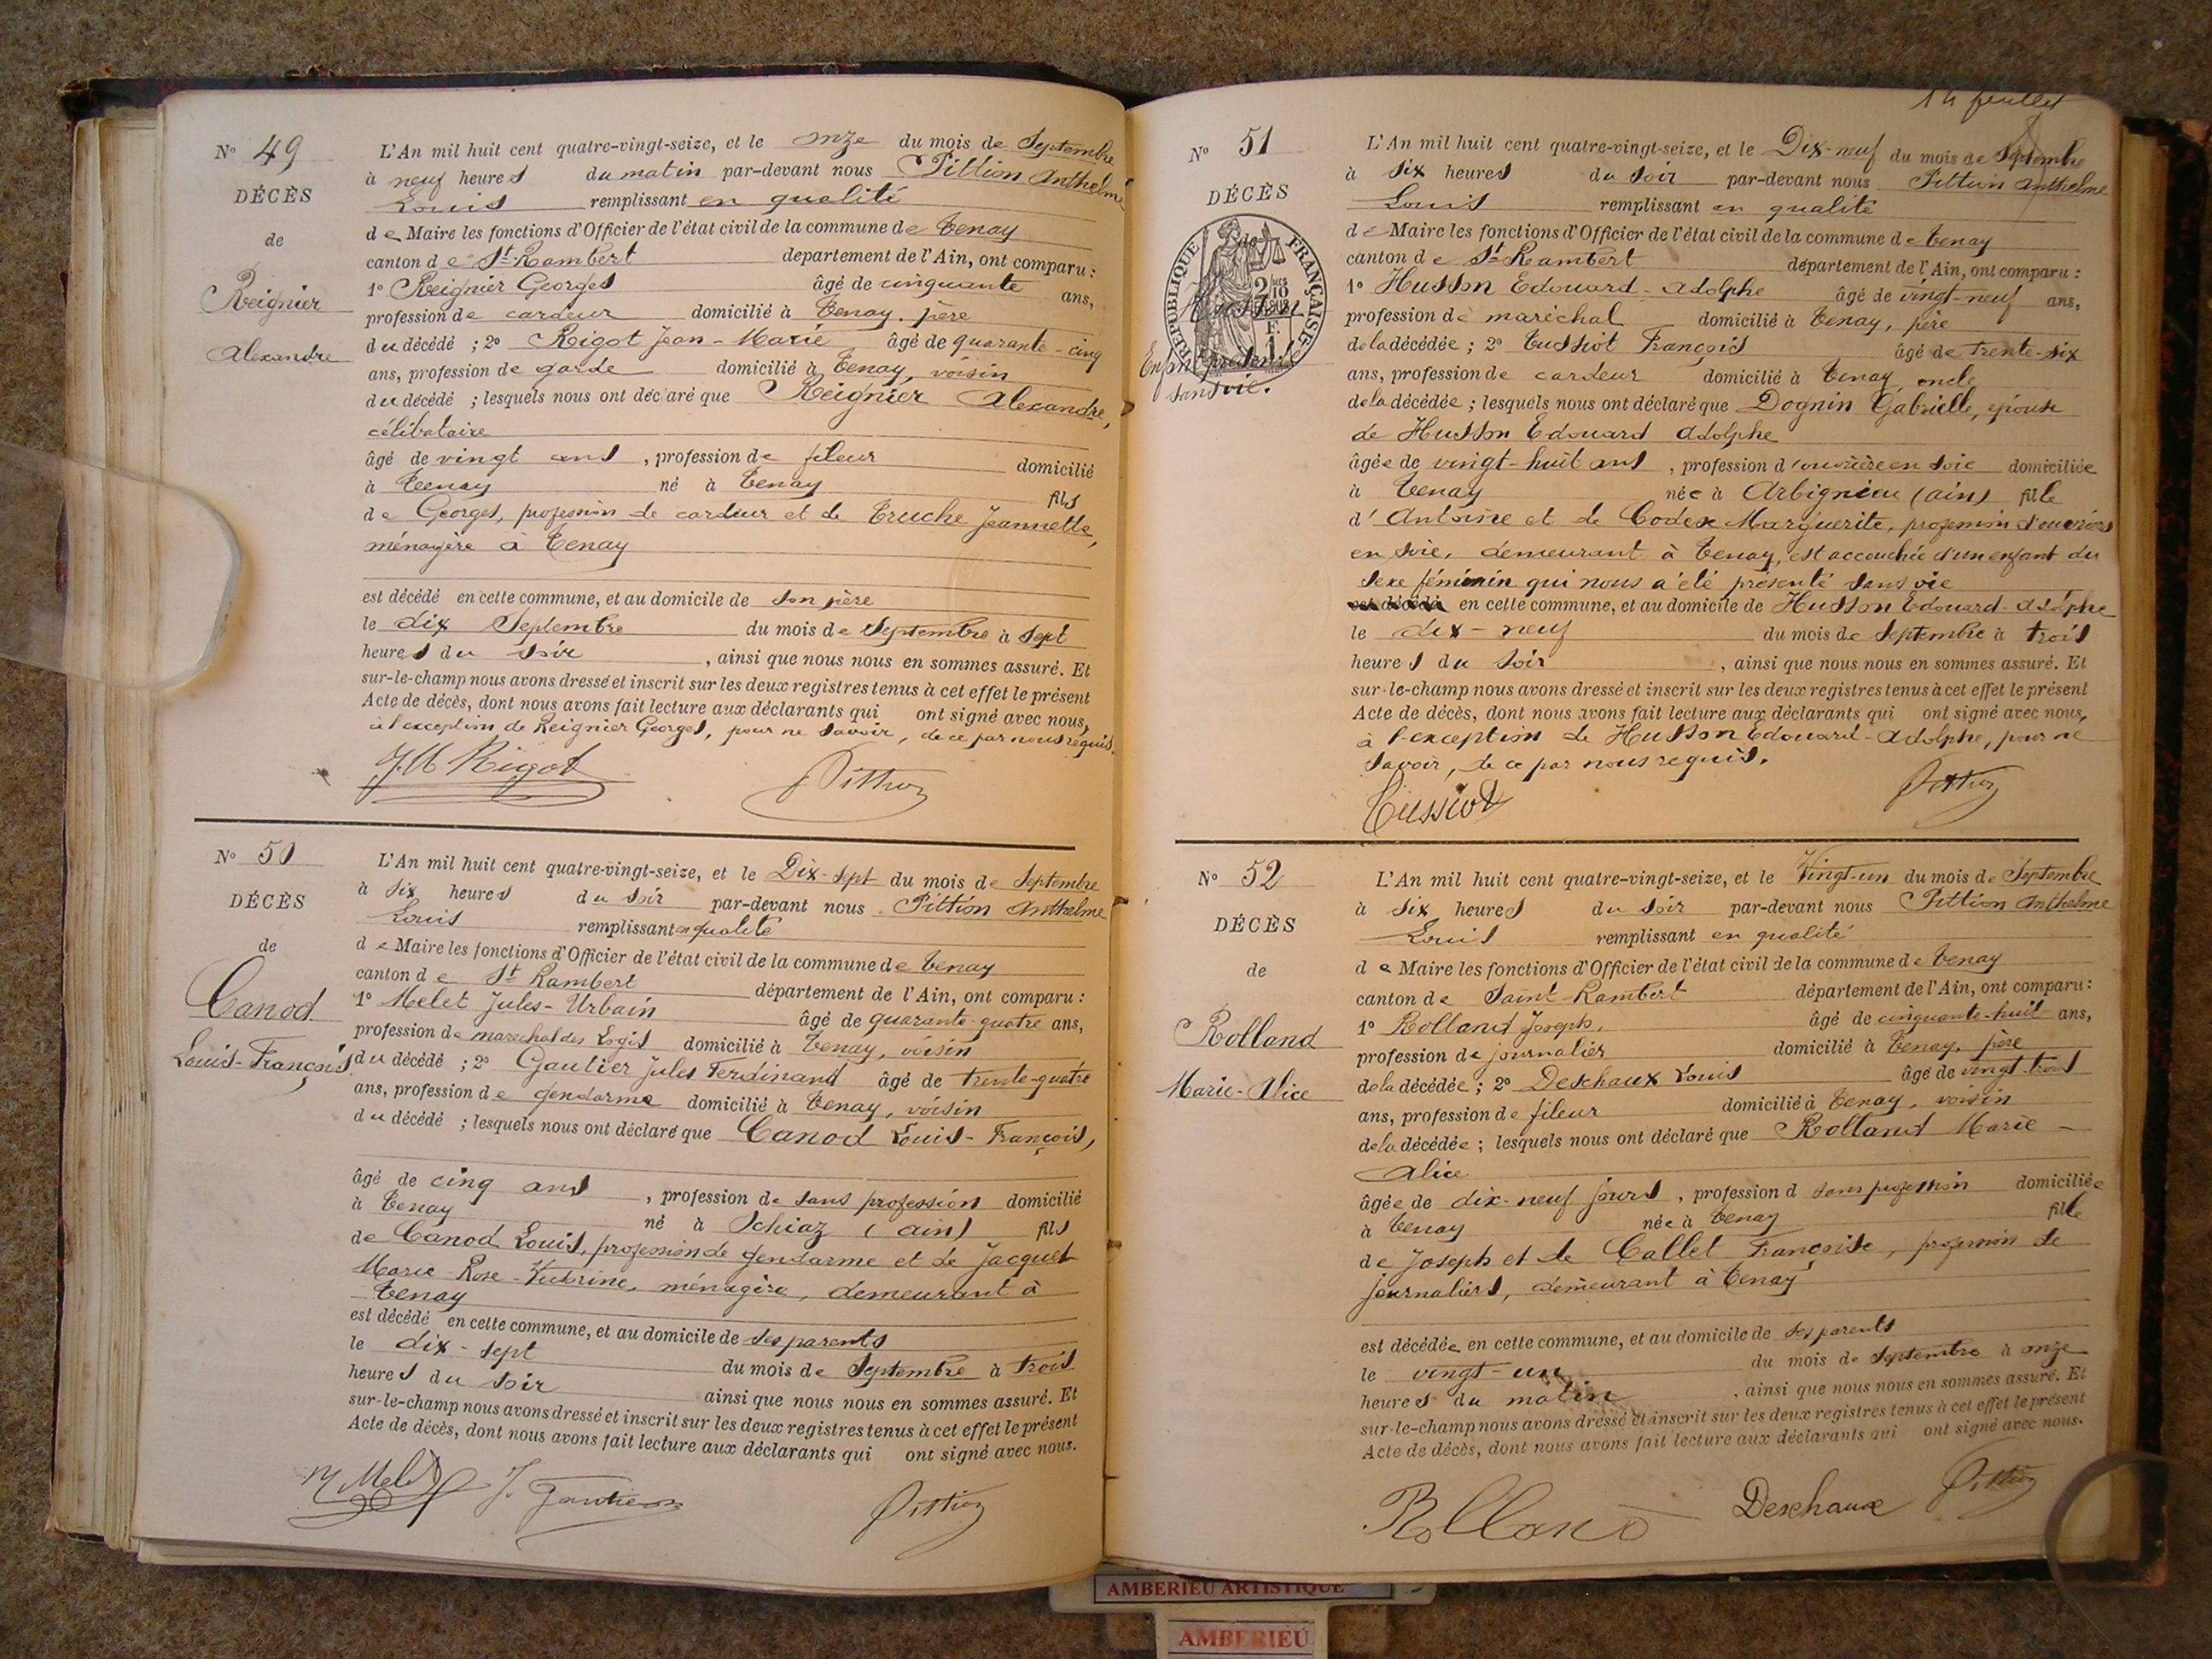 N° 49
DÉCÈS
de
Reignier
Alexandre
L'An mil huit cent quatre-vingt-seize, et le onze du mois de Septembre
à neuf heures du matin par-devant nous Pittion Anthelme
Louis remplissant en qualité
de Maire les fonctions d'Officier de l'état civil de la commune de Tenay
canton de St-Rambert département de l'Ain, ont comparu :
1° Reignier Georges âgé de cinquante ans,
profession de cardeur domicilié à Tenay, père
du décédé ; 2° Rigot Jean-Marie âgé de quarante-cinq
ans, profession de garde domicilié à Tenay, voisin
du décédé ; lesquels nous ont déclaré que Reignier Alexandre,
célibataire
âgé de vingt ans, profession de fileur domicilié
à Tenay né à Tenay fils
de Georges, profession de cardeur et de Truche Jeannette,
ménagère à Tenay
est décédé en cette commune, et au domicile de son père
le dix Septembre du mois de Septembre à sept
heures du soir, ainsi que nous nous en sommes assuré. Et
sur-le-champ nous avons dressé et inscrit sur les deux registres tenus à cet effet le présent
Acte de décès, dont nous avons fait lecture aux déclarants qui ont signé avec nous,
à l'exception de Reignier Georges, pour ne savoir, de ce par nous requis.
J.M Rigot Pittion
N° 50
DÉCÈS
de
Canod
Louis-François
L'An mil huit cent quatre-vingt-seize, et le Dix-sept du mois de Septembre
à six heures du soir par-devant nous Pittion Anthelme
Louis remplissant en qualité
de Maire les fonctions d'Officier de l'état civil de la commune de Tenay
canton de St Rambert département de l'Ain, ont comparu :
1° Melet Jules-Urbain âgé de quarante-quatre ans,
profession de maréchal des Logis domicilié à Tenay, voisin
du décédé ; 2° Gautier Jules Ferdinand âgé de trente-quatre
ans, profession de gendarme domicilié à Tenay, voisin
du décédé ; lesquels nous ont déclaré que Canod Louis-François,
âgé de cinq ans, profession de sans profession domicilié
à Tenay né à Schiaz (Ain) fils
de Canod Louis, profession de gendarme et de Jacquet
Marie-Rose ménagère, demeurant à
Tenay
est décédé en cette commune, et au domicile de ses parents
le dix-sept du mois de Septembre à trois
heures du soir ainsi que nous nous en sommes assuré. Et
sur-le-champ nous avons dressé et inscrit sur les deux registres tenus à cet effet le présent
Acte de décès, dont nous avons fait lecture aux déclarants qui ont signé avec nous.
Melet J. Gautier Pittion
14 feuillet
N° 51
DÉCÈS
de
RÉPUBLIQUE FRANÇAISE
Husson
Enfant présenté
sans vie.
L'An mil huit cent quatre-vingt-seize, et le Dix-neuf du mois de Septembre
à six heures du soir par-devant nous Pittion Anthelme
Louis remplissant en qualité
de Maire les fonctions d'Officier de l'état civil de la commune de Tenay
canton de St-Rambert département de l'Ain, ont comparu :
1° Husson Edouard-Adolphe âgé de vingt-neuf ans,
profession de maréchal domicilié à Tenay, père
de la décédée ; 2° Tussiot François âgé de trente-six
ans, profession de cardeur domicilié à Tenay, oncle
de la décédée ; lesquels nous ont déclaré que Dognin Gabrielle, épouse
de Husson Edouard Adolphe
âgée de vingt-huit ans, profession d'ouvrière en soie domiciliée
à Tenay née à Arbignieu (Ain) fille
d'Antoine et de Codex Marguerite, profession d'ouvriers
en soie, demeurant à Tenay, est accouchée d'un enfant du
sexe féminin qui nous a été présenté sans vie
est décédé en cette commune, et au domicile de Husson Edouard-Adolphe
le dix-neuf du mois de Septembre à trois
heures du soir, ainsi que nous nous en sommes assuré. Et
sur-le-champ nous avons dressé et inscrit sur les deux registres tenus à cet effet le présent
Acte de décès, dont nous avons fait lecture aux déclarants qui ont signé avec nous,
à l'exception de Husson Edouard-Adolphe, pour ne
savoir, de ce par nous requis.
Tussiot Pittion
N° 52
DÉCÈS
de
Rolland
Marie-Alice
L'An mil huit cent quatre-vingt-seize, et le Vingt-un du mois de Septembre
à six heures du soir par-devant nous Pittion Anthelme
Louis remplissant en qualité
de Maire les fonctions d'Officier de l'état civil de la commune de Tenay
canton de Saint-Rambert département de l'Ain, ont comparu :
1° Rolland Joseph, âgé de cinquante-huit ans,
profession de journalier domicilié à Tenay, père
de la décédée ; 2° Deschaux Louis âgé de vingt-trois
ans, profession de fileur domicilié à Tenay, voisin
de la décédée ; lesquels nous ont déclaré que Rolland Marie-
Alice
âgée de dix-neuf jours, profession d sans profession domiciliée
à Tenay née à Tenay fille
de Joseph et de Callet Françoise, profession de
journaliers, demeurant à Tenay
est décédée en cette commune, et au domicile de ses parents
le vingt-un du mois de Septembre à onze
heures du matin, ainsi que nous nous en sommes assuré. Et
sur-le-champ nous avons dressé et inscrit sur les deux registres tenus à cet effet le présent
Acte de décès, dont nous avons fait lecture aux déclarants qui ont signé avec nous.
Rolland Deschaux Pittion
AMBERIEU ARTISTIQUE
AMBERIEU